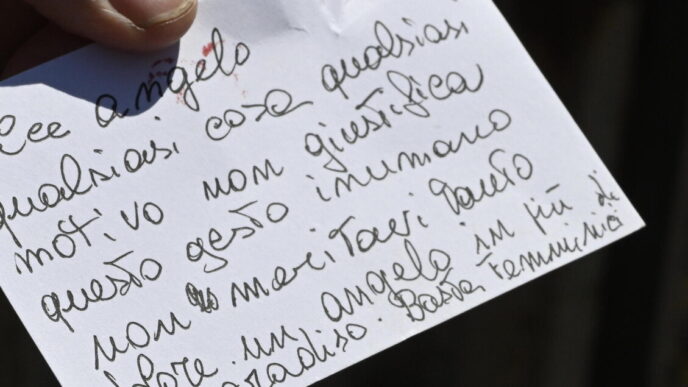 angelo
qualsiasi cosa qualsiasi
motivo non giustifica
questo gesto inumano
non meritavi tanto
dolore. un angelo in più di
paradiso. Basta femminici